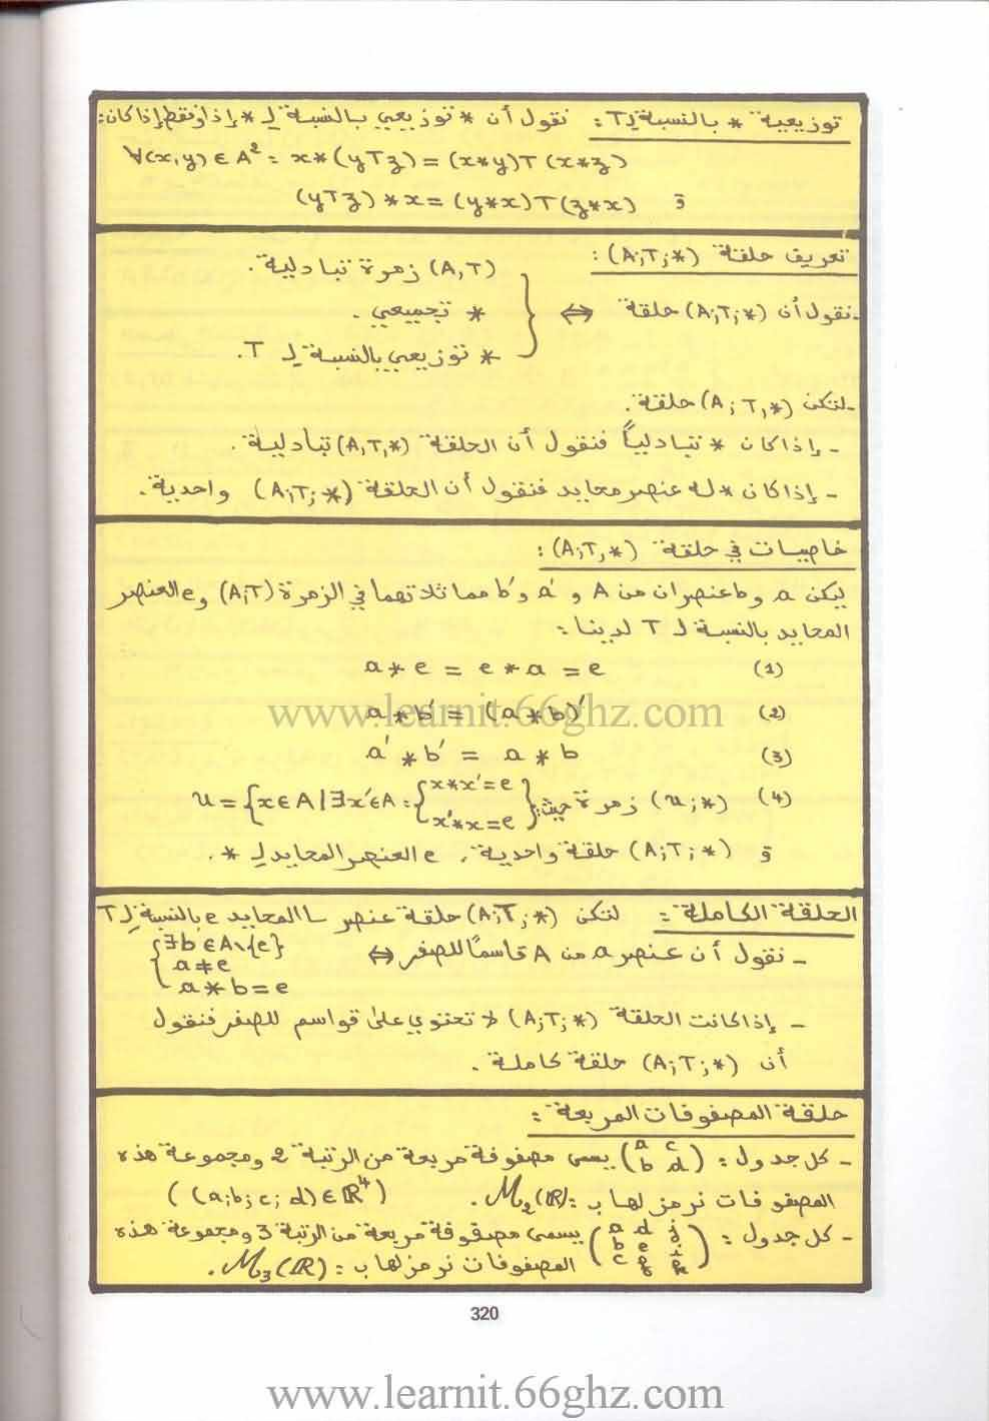 توزيعية * بالنسبة لـ T : نقول أن * توزيعي بالنسبة لـ * إذا وفقط إذا كان:
∀(x,y) ∈ A² : x*(yTz) = (x*y)T(x*z)
و (yTz)*x = (y*x)T(z*x)
تعريف حلقة (A;T;*) :
(A,T) زمرة تبادلية.
-نقول أن (A;T;*) حلقة ⇔ { * تجميعي.
* توزيعي بالنسبة لـ T.
-لتكن (A;T,*) حلقة.
- إذا كان * تبادلياً فنقول أن الحلقة (A,T,*) تبادلية.
- إذا كان * له عنصر محايد فنقول أن الحلقة (A;T;*) واحدية.
خاصيات في حلقة (A;T,*) :
ليكن a و b عنصران من A و a' و b' مماثلاتهما في الزمرة (A;T) و e العنصر
المحايد بالنسبة لـ T لدينا :
(1) a * e = e * a = e
(2) a * b' = (a * b)'
(3) a' * b' = a * b
(4) (U;*) زمرة حيث: U = {x∈A | ∃x'∈A : {x*x'=e x'*x=e}
و (A;T;*) حلقة واحدية، e العنصر المحايد لـ *.
الحلقة الكاملة : لتكن (A;T;*) حلقة عنصرها المحايد e بالنسبة لـ T
- نقول أن عنصر a من A قاسمًا للصفر ⇔ {∃b ∈ A\{e}
a≠e
a * b = e
- إذا كانت الحلقة (A;T;*) لا تحتوي على قواسم للصفر فنقول
أن (A;T;*) حلقة كاملة.
حلقة المصفوفات المربعة :
- كل جدول : (a c b d) يسمى مصفوفة مربعة من الرتبة 2 ومجموعة هذه
المصفوفات نرمز لها ب : M₂(ℝ). ((a;b;c;d)∈ℝ⁴)
- كل جدول : (a d j b e i c f k) يسمى مصفوفة مربعة من الرتبة 3 ومجموعة هذه
المصفوفات نرمز لها ب : M₃(ℝ).
320
www.learnit.66ghz.com
www.learnit.66ghz.com